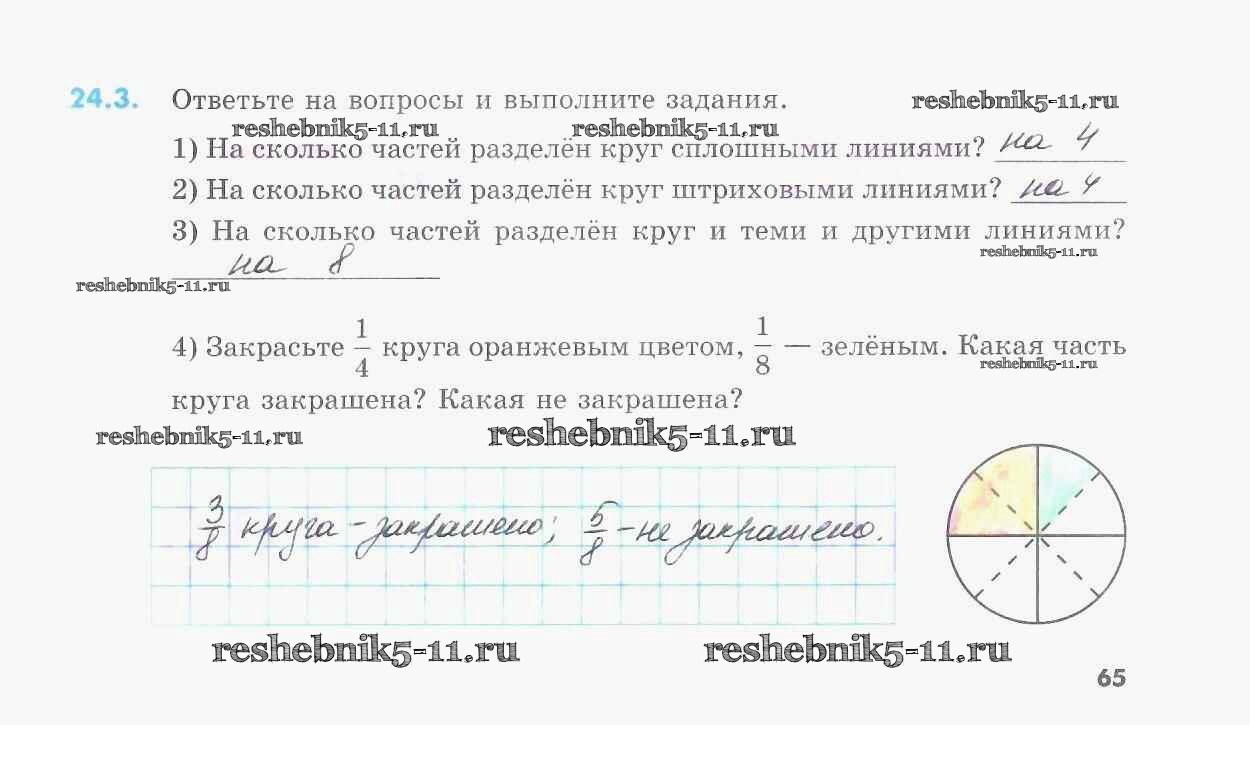 24.3. Ответьте на вопросы и выполните задания. reshebnik5-11.ru
reshebnik5-11.ru reshebnik5-11.ru
1) На сколько частей разделён круг сплошными линиями? на 4
2) На сколько частей разделён круг штриховыми линиями? на 4
3) На сколько частей разделён круг и теми и другими линиями?
reshebnik5-11.ru
на 8
reshebnik5-11.ru
4) Закрасьте 1/4 круга оранжевым цветом, 1/8 — зелёным. Какая часть
reshebnik5-11.ru
круга закрашена? Какая не закрашена?
reshebnik5-11.ru reshebnik5-11.ru
3/8 круга - закрашено; 5/8 - не закрашено.
reshebnik5-11.ru reshebnik5-11.ru
65